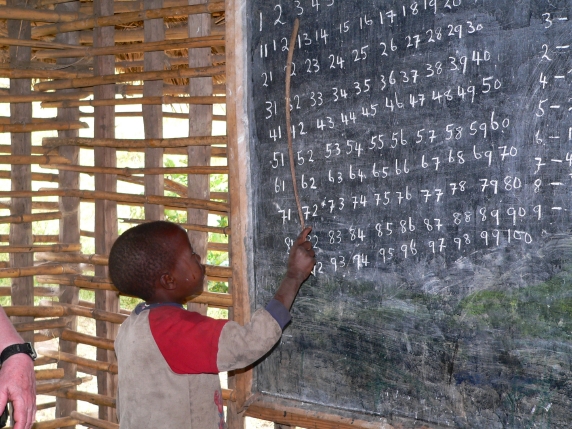 1 2 3 4 5
11 12 13 14 15 16 17 18 19 20
21 2 23 24 25 26 27 28 29 30
31 32 33 34 35 36 37 38 39 40
41 42 43 44 45 46 47 48 49 50
51 52 53 54 55 56 57 58 59 60
61 62 63 64 65 66 67 68 69 70
71 72 73 74 75 76 77 78 79 80
82 83 84 85 86 87 88 89 90
92 93 94 95 96 97 98 99 100
3 -
2 -
4 -
5 -
6 -
7 -
8 -
9 -